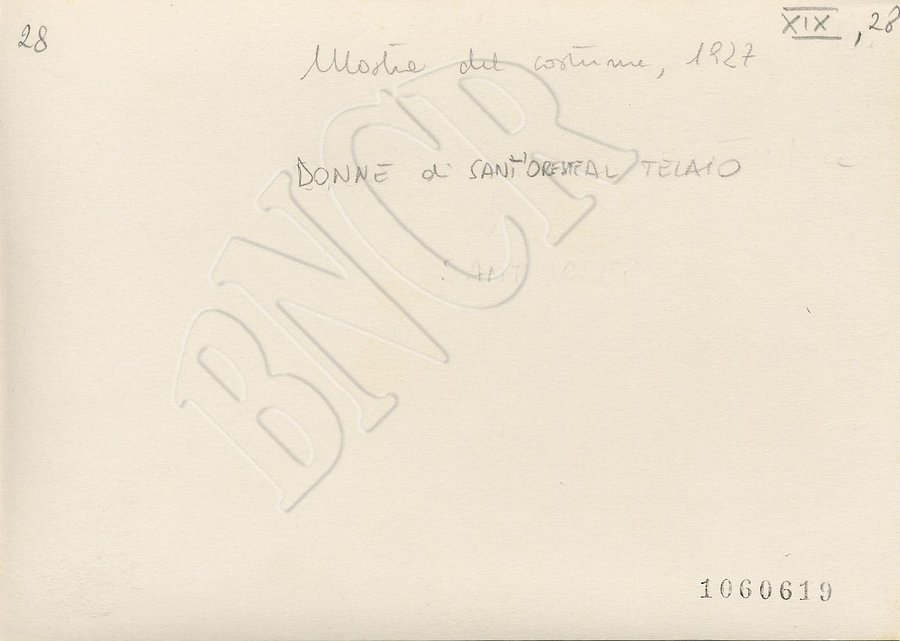 28
XIX, 28
Mostra del costume, 1927
DONNE di SANT'ORESTE AL TELAIO
SANT
BNCR
1060619